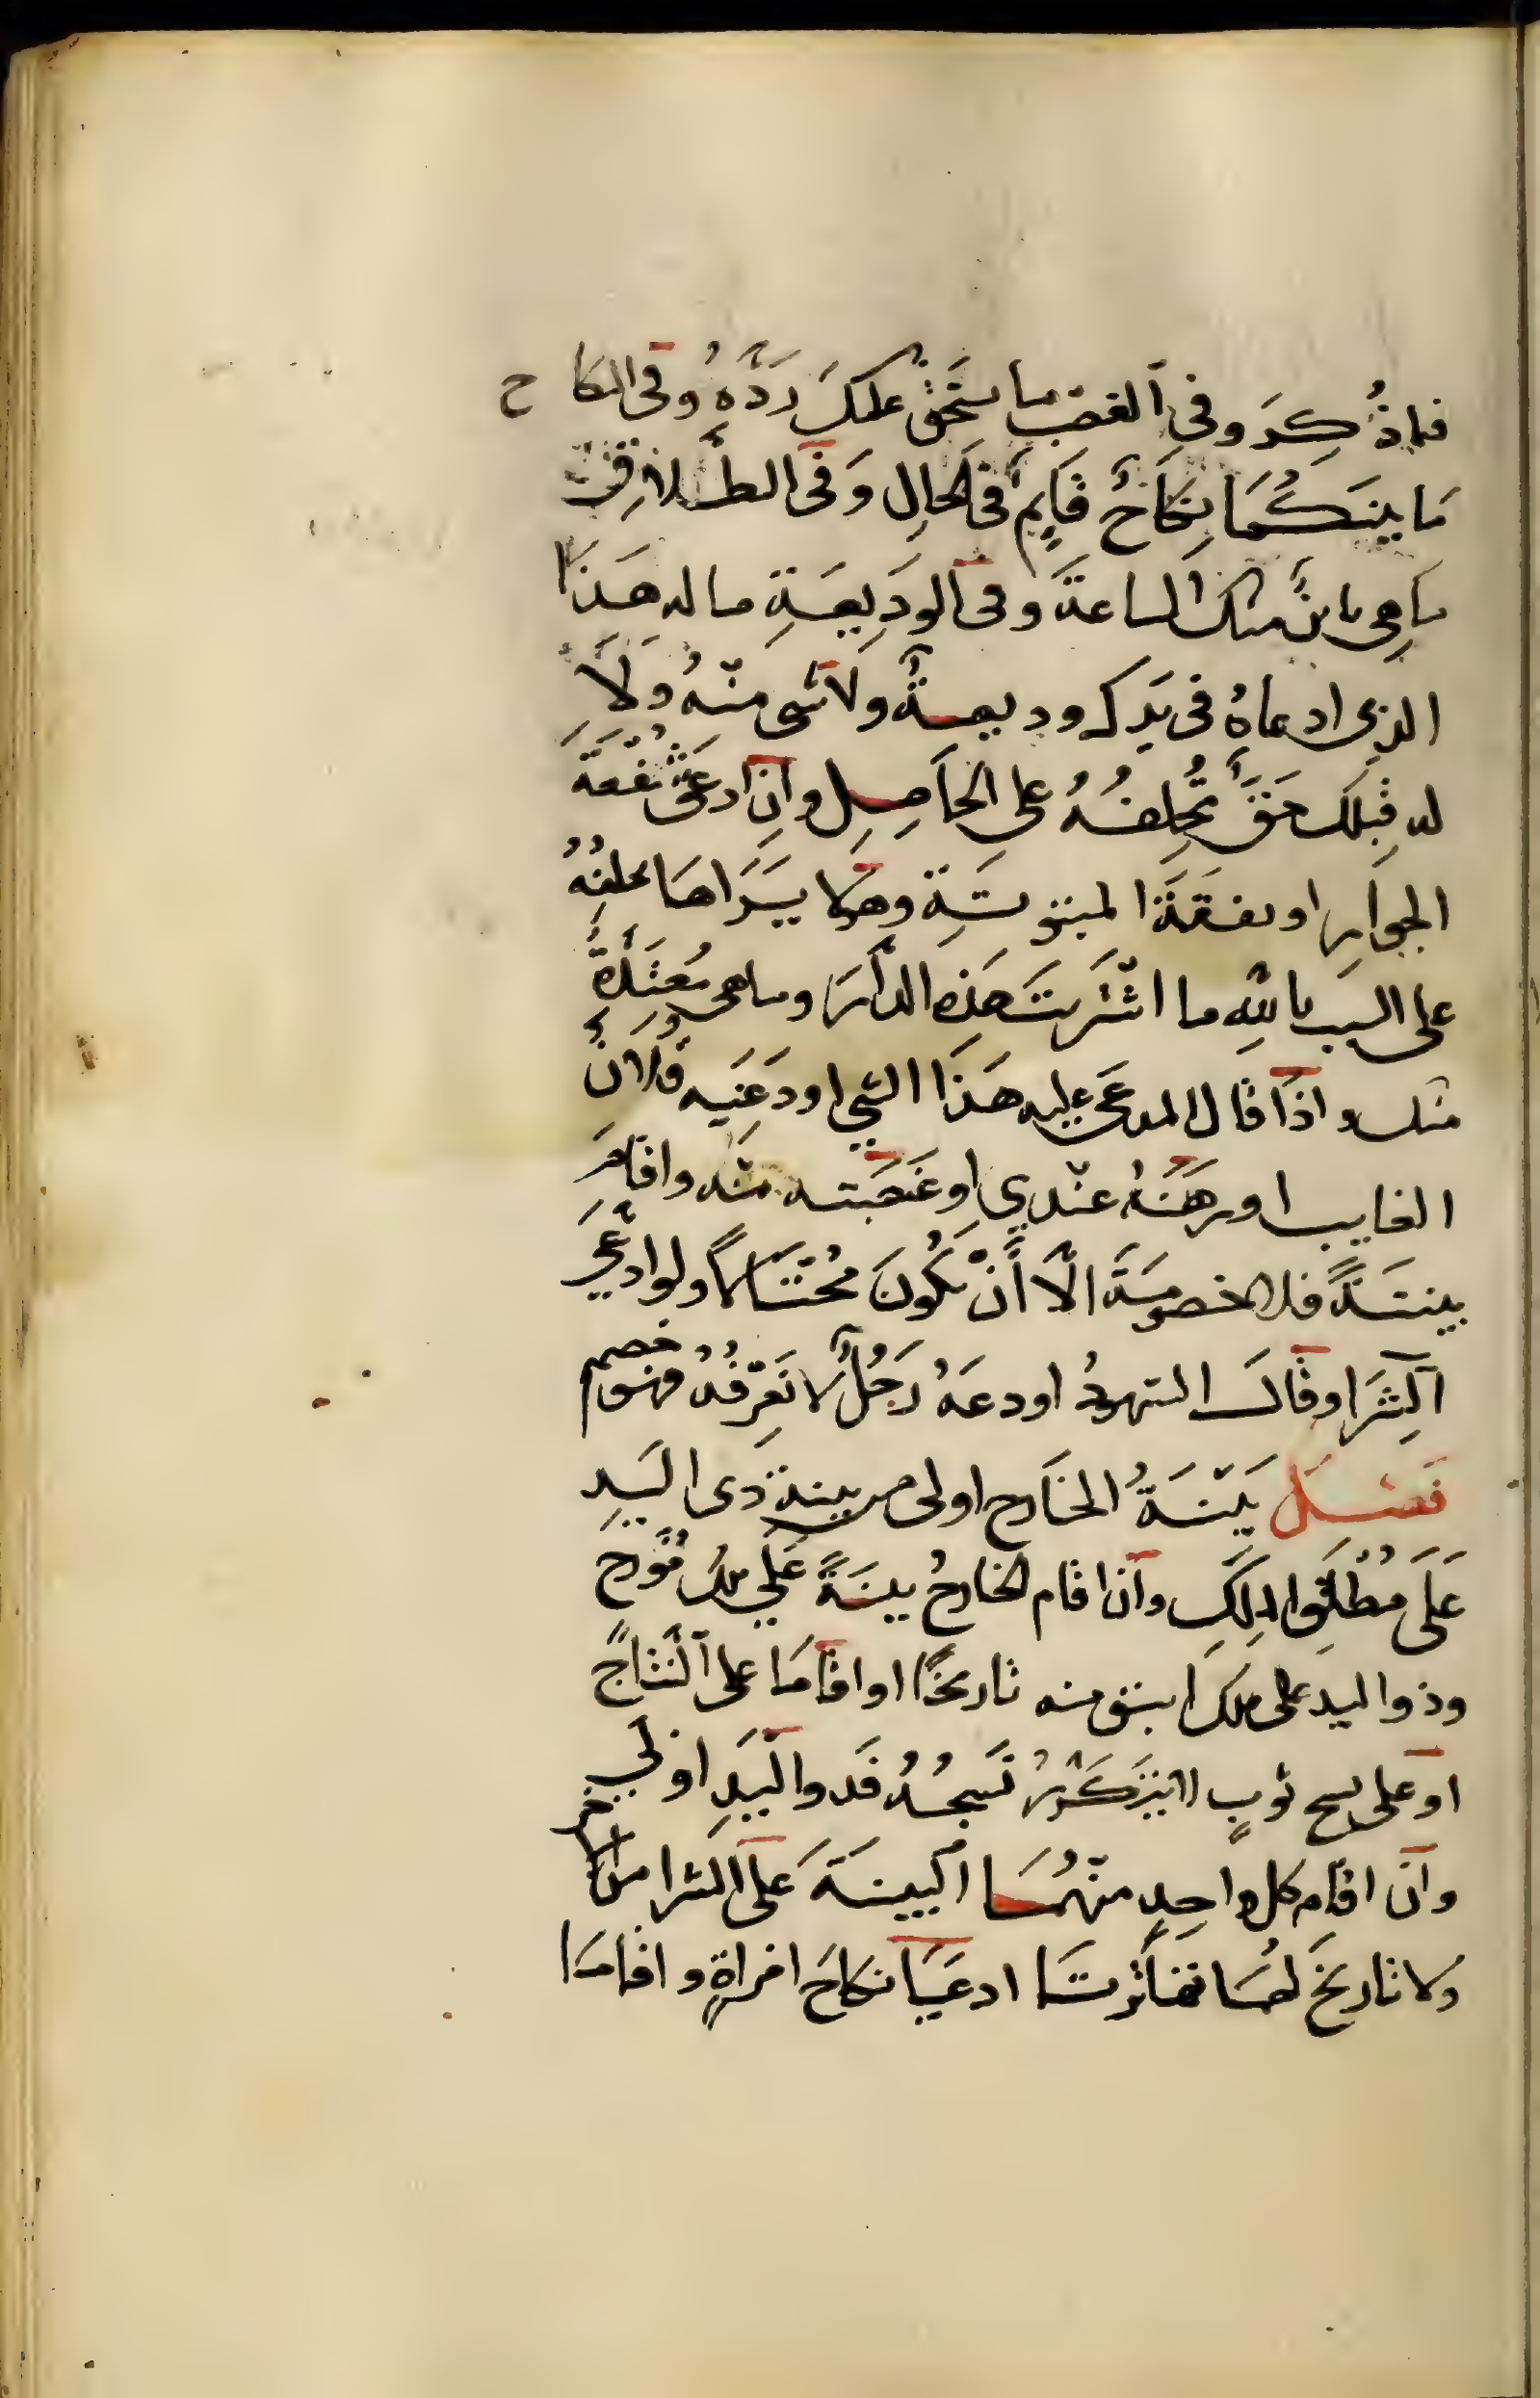 فيما ذُكِرَ وفي الغصب ما يستحق عليك رَدَّهُ وفي النكاح
مَا بينَكُمَا نِكَاحٌ قَايِمٌ في الحالِ وَفي الطلاق
مَا هِى باينٌ منك الساعةَ وفي الوَدِيعَةِ ما له هَذا
الذِي ادعاهُ في يَدِكَ وديعةٌ ولا شى منْهُ وَلا
له قِبَلَكَ حَقٌّ تُحلِفُهُ على الحاصِلِ وان ادعى شفعة
الجوار او نفقةَ المبتوتَةِ وهو لا يَرَاها يحلِفُهُ
على السبب باللهِ ما اشْتَرَيتَ هَذِهِ الدارَ وما هى مُعْتَدةٌ
منك واذَا قال المدعى عليه هَذَا الشي اودَعَنِيه فلانٌ
الغايب او رَهَنَهُ عنْدِي او غصَبته منه واقامَ
بينَةً فلا خصومَةَ الّا أنْ يَكُونَ مُحْتالًا ولو ادعى
الشِرَا او قال الشهودُ اودعَهُ رَجُلٌ لا نَعرِفُهُ فهو خصم
فصل بَيّنَةُ الخارج اولى من بينة ذى اليَدِ
عَلَى مُطْلَقِ الملكِ وان اقام الخارجُ بينَةً عَلَى ملك مُؤرخ
وذو اليد على ملك اسبق منه تاريخًا او اقاما على النتاج
او على نسج ثوبٍ لا يتكَرَّرُ نَسجُهُ فذو اليَدِ اولى
وان اقام كل واحِدٍ منْهُمَا البينَةَ عَلى الشرا من الاخر
ولا تاريخَ لهما تهاتَرتا ادعيَا نكاحَ امراةٍ واقامَا